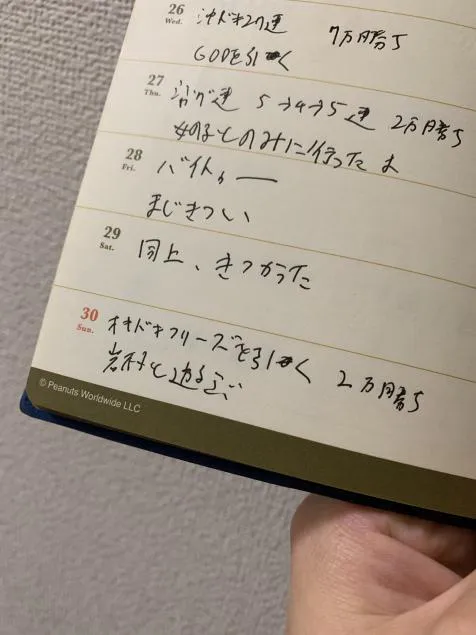 26 沖ドキ20連 7万円勝ち
Wed.
GODを引く
27 連 5→4→5連 2万円勝ち
Thu. 女の子とのみに行ったよ
28 バイト、
Fri.
まじきつい
29 同上、きつかった
Sat.
30 オキドキフリーズを引く 2万円勝ち
Sun. 岩村と遊ぶ
© Peanuts Worldwide LLC